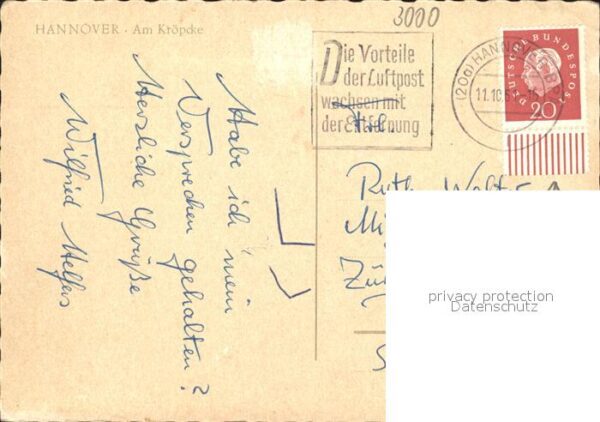 HANNOVER · Am Kröpcke
3000
Die Vorteile
der Luftpost
wachsen mit
der Entfernung
(20a) HANNOVER
11.10.6
DEUTSCHE BUNDESPOST
20
Habe ich mein
Versprechen gehalten?
Herzliche Grüße
Wilfried Helfers
Frl.
Ruth
privacy protection
Datenschutz